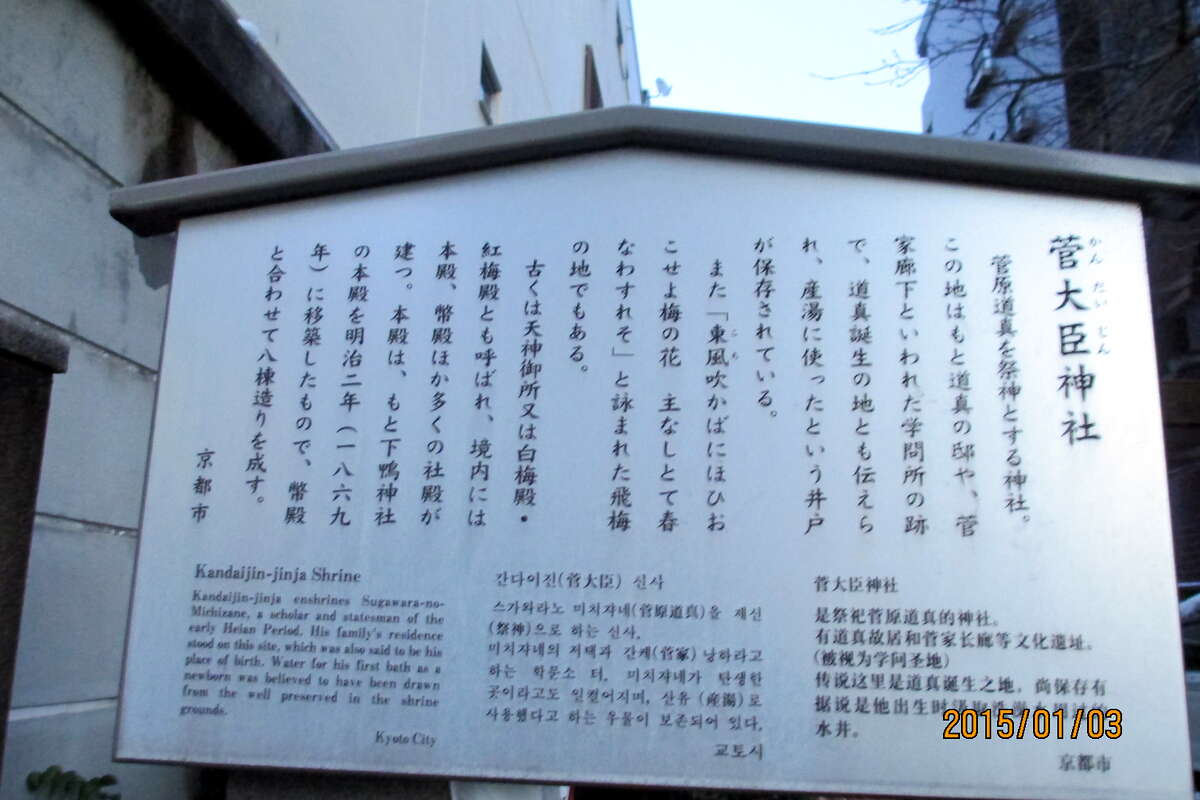 菅大臣神社
かんだいじん
菅原道真を祭神とする神社。
この地はもと道真の邸や、菅
家廊下といわれた学問所の跡
で、道真誕生の地とも伝えら
れ、産湯に使ったという井戸
が保存されている。
また「東風吹かばにほひお
こち
こせよ梅の花　主なしとて春
なわすれそ」と詠まれた飛梅
の地でもある。
古くは天神御所又は白梅殿・
紅梅殿とも呼ばれ、境内には
本殿、幣殿ほか多くの社殿が
建つ。本殿は、もと下鴨神社
の本殿を明治二年（一八六九
年）に移築したもので、幣殿
と合わせて八棟造りを成す。
京都市
Kandaijin-jinja Shrine
Kandaijin-jinja enshrines Sugawara-no-
Michizane, a scholar and statesman of the
early Heian Period. His family's residence
stood on this site, which was also said to be his
place of birth. Water for his first bath as a
newborn was believed to have been drawn
from the well preserved in the shrine
grounds.
Kyoto City
간다이진(菅大臣) 신사
스가와라노 미치쟈네(菅原道真)을 제신
(祭神)으로 하는 신사.
미치쟈네의 저택과 간케(菅家) 낭하라고
하는 학문소 터, 미치쟈네가 탄생한
곳이라고도 일컬어지며, 산유 (産湯)로
사용했다고 하는 우물이 보존되어 있다.
교토시
菅大臣神社
是祭祀菅原道真的神社。
有道真故居和菅家长廊等文化遗址。
(被视为学问圣地)
传说这里是道真诞生之地，尚保存有
据说是他出生时
水井。
京都市
2015/01/03